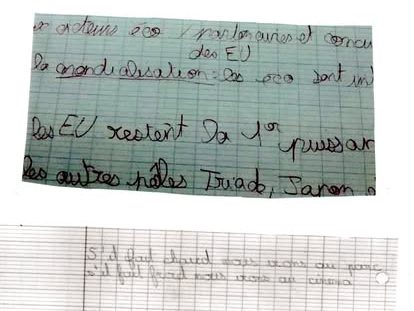 acteurs éco / partenaires et concu
des EU
La mondialisation : les éco sont in
Les EU restent la 1er puissan
les autres pôles Triade, Japon
S'il fait chaud nous irons au parc
s'il fait froid nous irons au cinema